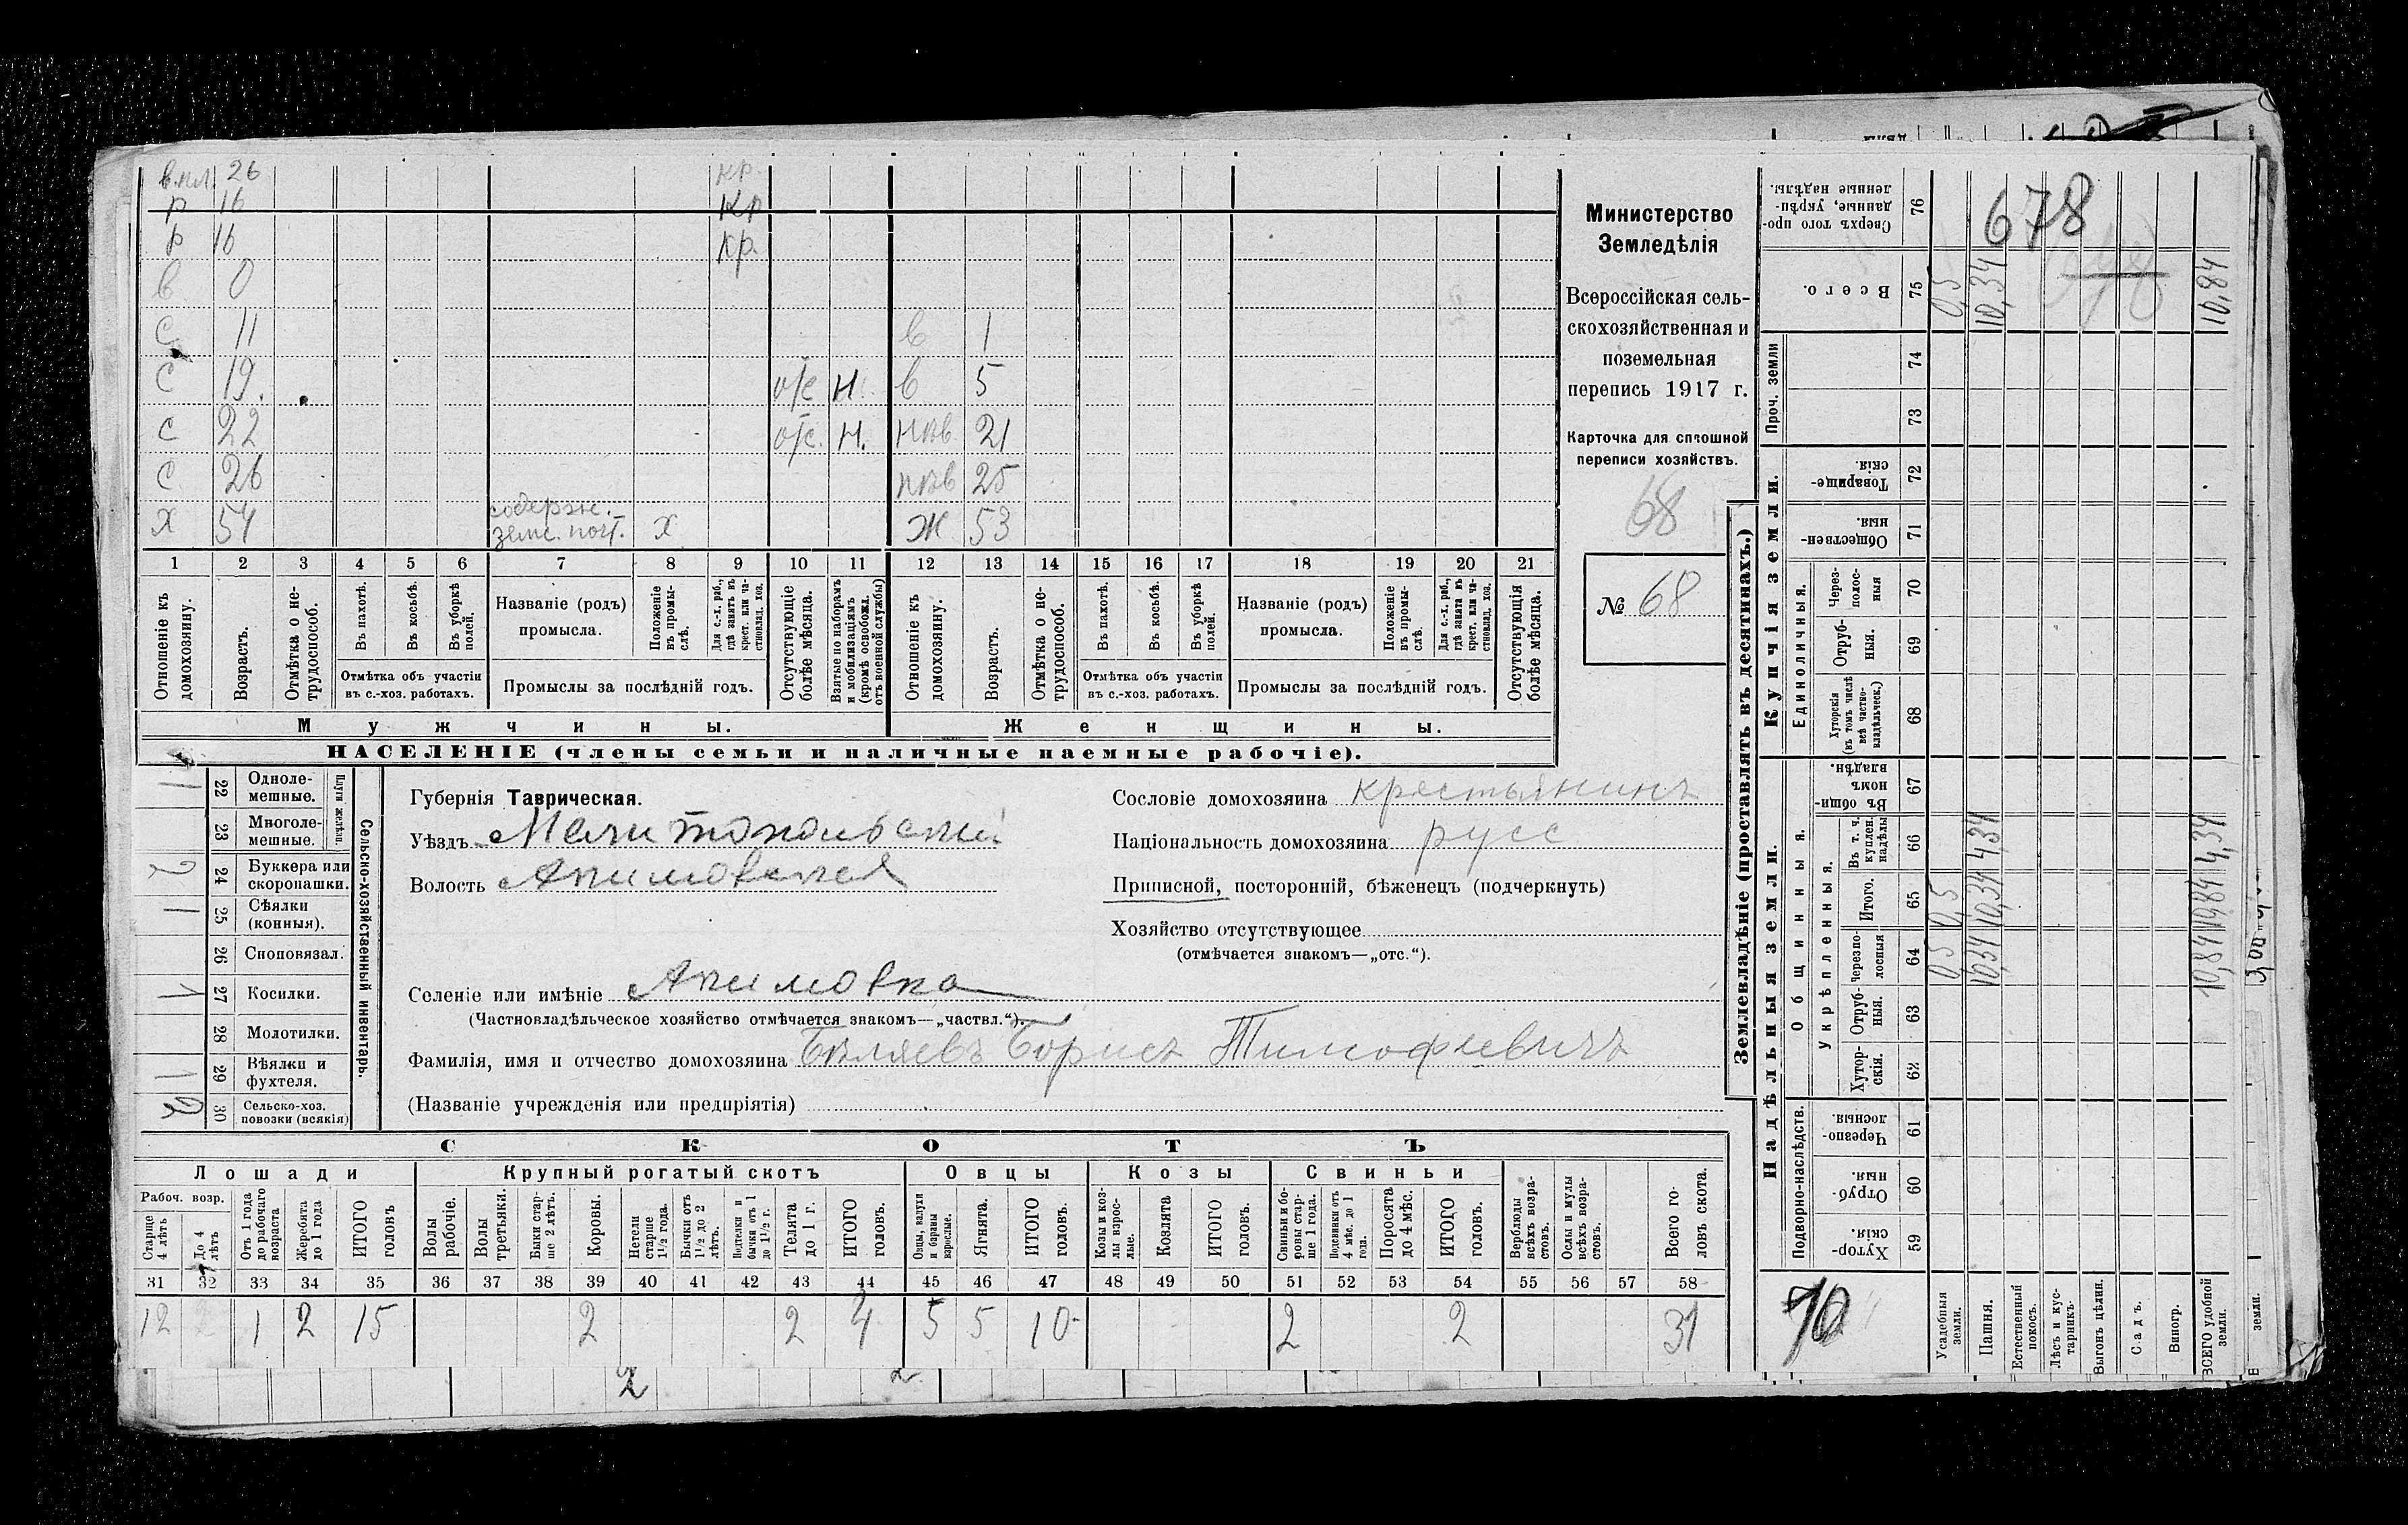 в.пл. 26 кр.
р 16 кр
р 16 кр.
в 0
с 11 в 1
с 19. отс н. в 5
с 22 отс. н. нев 21
с 26 нев 25
содерж.
х 54 земс. почт. х ж 53
1 2 3 4 5 6 7 8 9 10 11 12 13 14 15 16 17 18 19 20 21
Отношеніе къ домохозяину.
Возрастъ.
Отмѣтка о не-трудоспособ.
Въ пахотѣ.
Въ косьбѣ.
Въ уборкѣ полей.
Отмѣтка объ участіи
въ с.-хоз. работахъ.
Названіе (родъ)
промысла.
Положеніе въ промы-слѣ.
Для с.-х. раб., гдѣ занятъ въ крест. или ча-стновлад. хоз.
Промыслы за послѣдній годъ.
Отсутствующіе болѣе мѣсяца.
Взятые по наборамъ и мобилизаціямъ (кромѣ освобожд. отъ военной службы)
Отношеніе къ домохозяину.
Возрастъ.
Отмѣтка о не-трудоспособ.
Въ пахотѣ.
Въ косьбѣ.
Въ уборкѣ полей.
Отмѣтка объ участіи
въ с.-хоз. работахъ.
Названіе (родъ)
промысла.
Положеніе въ промы-слѣ.
Для с.-х. раб., гдѣ занята въ крест. или ча-стновлад. хоз.
Промыслы за послѣдній годъ.
Отсутствующія болѣе мѣсяца.
Мужчины. Женщины.
НАСЕЛЕНІЕ (члены семьи и наличные наемные рабочіе).
Министерство
Земледѣлія
Всероссійская сель-
скохозяйственная и
поземельная
перепись 1917 г.
Карточка для сплошной
переписи хозяйствъ.
68
№ 68
Сельско-хозяйственный инвентарь.
Плуги желѣзн.
1 22 Одноле-мешные.
23 Многоле-мешные.
2 24 Буккера или скоропашки.
1 25 Сѣялки (конныя).
26 Сноповязал.
1 27 Косилки.
28 Молотилки.
1 29 Вѣялки и фухтеля.
2 30 Сельско-хоз. повозки (всякія)
Губернія Таврическая.
Уѣздъ Мелитопольскій
Волость Акимовская
Сословіе домохозяина крестьянинъ
Національность домохозяина русс
Приписной, посторонній, бѣженецъ (подчеркнуть)
Хозяйство отсутствующее
(отмѣчается знакомъ—„отс.“).
Селеніе или имѣніе Акимовка
(Частновладѣльческое хозяйство отмѣчается знакомъ—„частвл.“).
Фамилія, имя и отчество домохозяина Бѣляевъ Борисъ Тимофеевичъ
(Названіе учрежденія или предпріятія)
СКОТЪ
Лошади Крупный рогатый скотъ Овцы Козы Свиньи
Рабоч. возр.
Старше 4 лѣтъ
До 4 лѣтъ
Отъ 1 года до рабочаго возраста
Жеребята до 1 года
ИТОГО головъ
Волы рабочіе.
Волы третьяки.
Быки стар-ше 2 лѣтъ.
Коровы.
Нетели старше 1½ года.
Бычки отъ 1½ до 2 лѣтъ.
Подтелки и бычки отъ 1 до 1½ г.
Телята до 1 г.
ИТОГО головъ.
Овцы, валухи и бараны взрослые.
Ягнята.
ИТОГО головъ.
Козы и коз-лы взрос-лые.
Козлята
ИТОГО головъ.
Свиньи и бо-ровы стар-ше 1 года.
Подсвинки отъ 4 мѣс. до 1 года.
Поросята до 4 мѣс.
ИТОГО головъ.
Верблюды всѣхъ возра-стовъ.
Ослы и мулы всѣхъ возра-стовъ.
Всего го-ловъ скота.
31 32 33 34 35 36 37 38 39 40 41 42 43 44 45 46 47 48 49 50 51 52 53 54 55 56 57 58
12 2 1 2 15 2 2 4 5 5 10 2 2 31
2 2
Землевладѣніе (проставлять въ десятинахъ.)
Надѣльныя земли. Купчія земли. Проч. земли
Подворно-наслѣдств.
Общинныя.
Укрѣпленныя.
Единоличныя.
Сверхъ того про-данные, укрѣп-ленные надѣлы. 76
678
Всего. 75 0,5 10,34 10,84
74
73
Товарище-скія. 72
Обществен-ныя. 71
Через-полос-ныя 70
Отруб-ныя. 69
Хуторскія (въ томъ числѣ всѣ частно-владѣльческ.) 68
Въ общи-номъ владѣн. 67
Въ т. ч. куплен. надѣлы 66 4,34 4,34
Итого. 65 0,5 10,34 10,84
Черезпо-лосныя 64 0,5 10,34 10,84
Отруб-ныя. 63
Хутор-скія. 62
Черезпо-лосныя 61
Отруб-ныя. 60
Хутор-скія. 59
70
Усадебныя земли.
Пашня.
Естественный покосъ.
Лѣсъ и кус-тарникъ.
Выгонъ цѣлин.
Садъ.
Виногр.
ВСЕГО удобной земли.
земли.